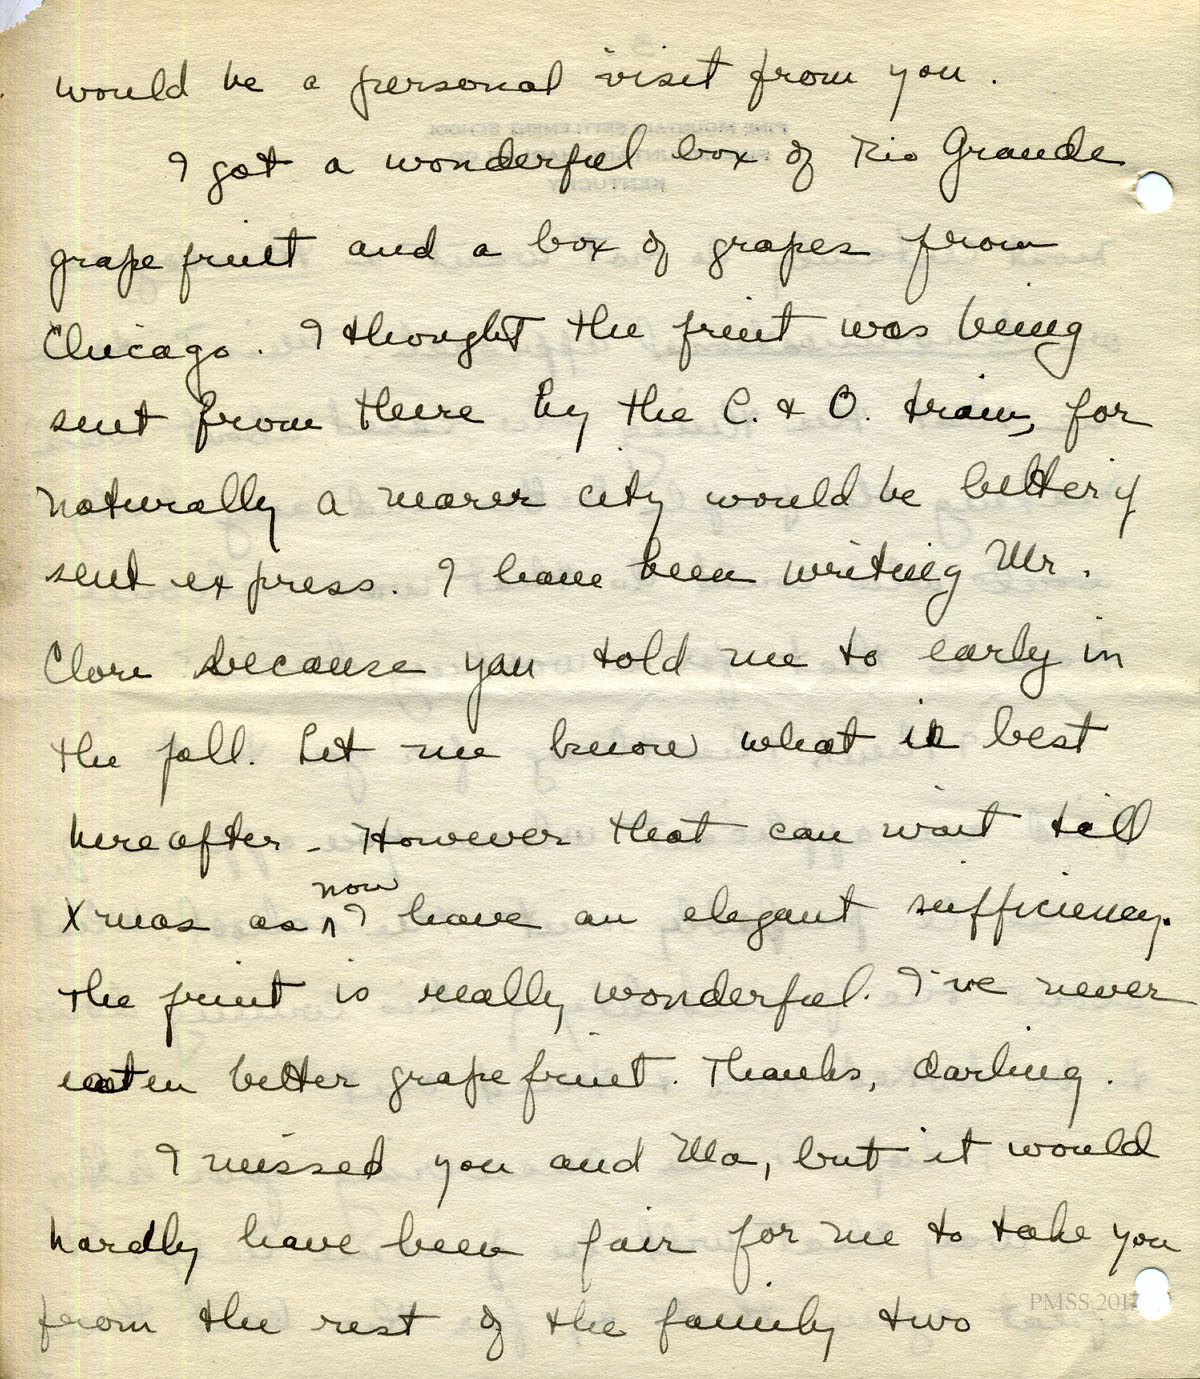 would be a personal visit from you.
I got a wonderful box of Rio Grande
grape fruit and a box of grapes from
Chicago. I thought the fruit was being
sent from there by the C. & O. train, for
naturally a nearer city would be better if
sent express. I have been writing Mr.
Clore because you told me to early in
the fall. Let me know what is best
hereafter - However that can wait till
now
Xmas as ^ I have an elegant sufficiency.
The fruit is really wonderful. I've never
eaten better grape fruit. Thanks, darling.
I missed you and Ma, but it would
hardly have been fair for me to take you
from the rest of the family two
PMSS 2017